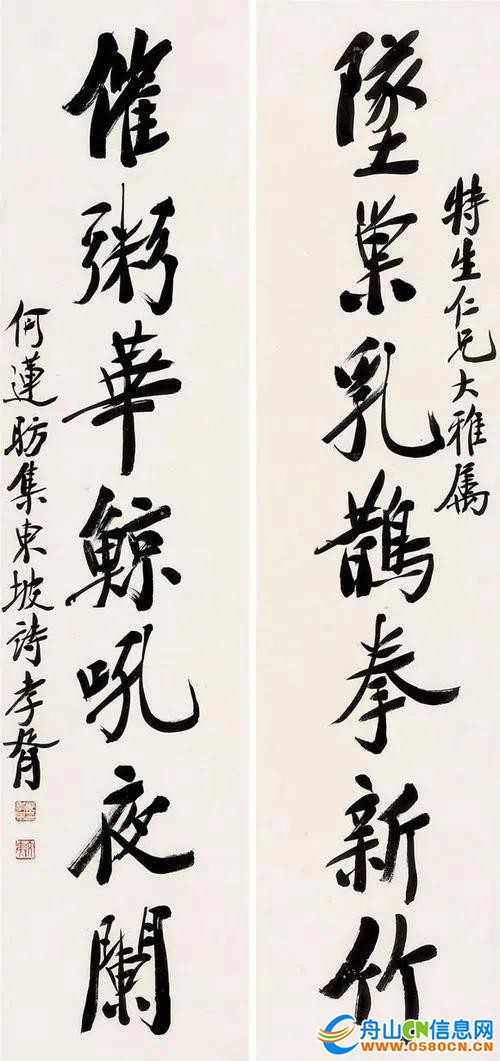 特生仁兄大雅属
墜巢乳鵲拳新竹
催粥華鯨吼夜闌
何蓮舫集東坡詩孝胥
舟山CN信息网
www.0580CN.CN